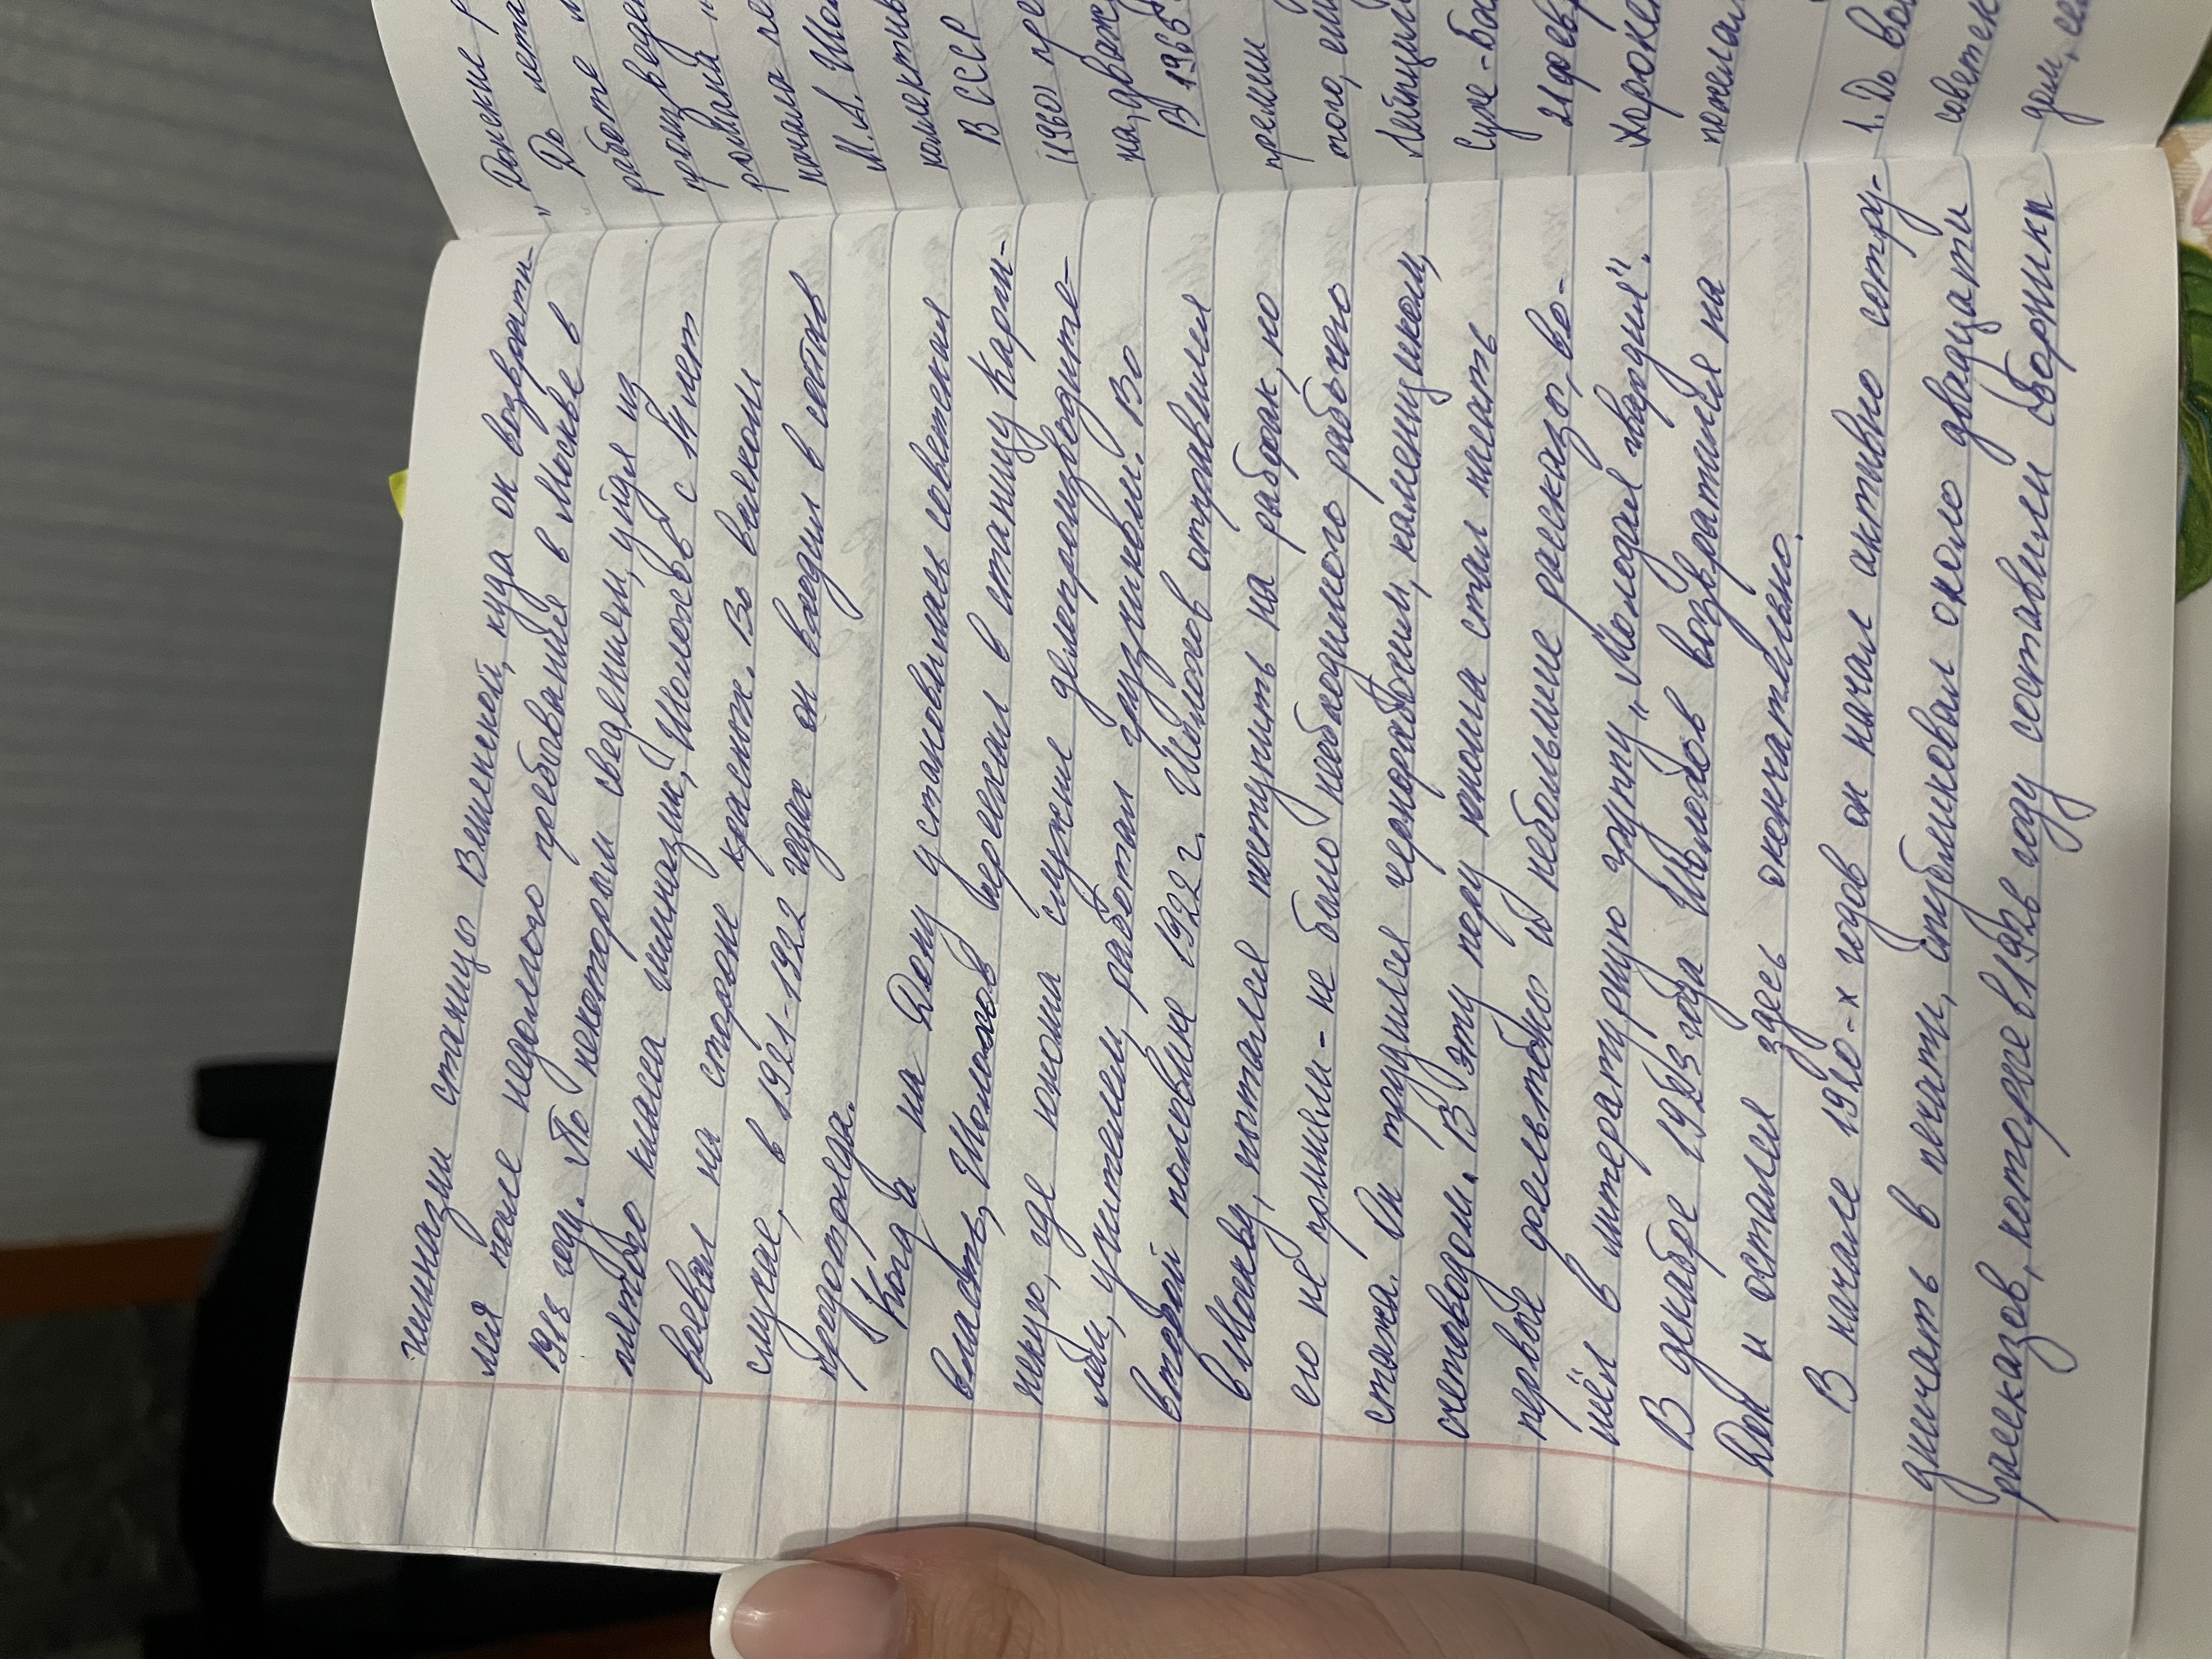 гимназии станицы Вешенской, куда он возврати-
лся после недолгого пребывания в Москве в
1918 году. По некоторым сведениям, уйдя из
пятого класса гимназии, Шолохов с 14 лет
воевал на стороне красных. Во всяком
случае, в 1921-1922 годах он входил в состав
продотряда.
Когда на Дону установилась советская
власть, Шолохов переехал в станицу Карги-
нскую, где юноша служил делопроизводите-
лем, учителем, работал грузчиком. Во
второй половине 1922 г. Шолохов отправился
в Москву, пытался поступить на рабфак, но
его не приняли - не было необходимого рабочего
стажа. Он трудился чернорабочим, каменщиком,
счетоводом. В эту пору юноша стал писать
первые фельетоны и небольшие рассказы, во-
шёл в литературную группу „Молодая гвардия".
В декабре 1923 года Шолохов возвратился на
Дон и остался здесь окончательно.
В начале 1920-х годов он начал активно сотру-
дничать в печати, опубликовал около двадцати
рассказов, которые в 1926 году составили сборники
„Донские р
До
работе
произведе
романа „
начала
М.А. Шо
коллектив
В СССР
(1960 пре
на, дваж
В 1965
премии
того, ем
Лейпциг
Суже-
21 февр
похорон
пожелал
1. До во
советск
дом, се